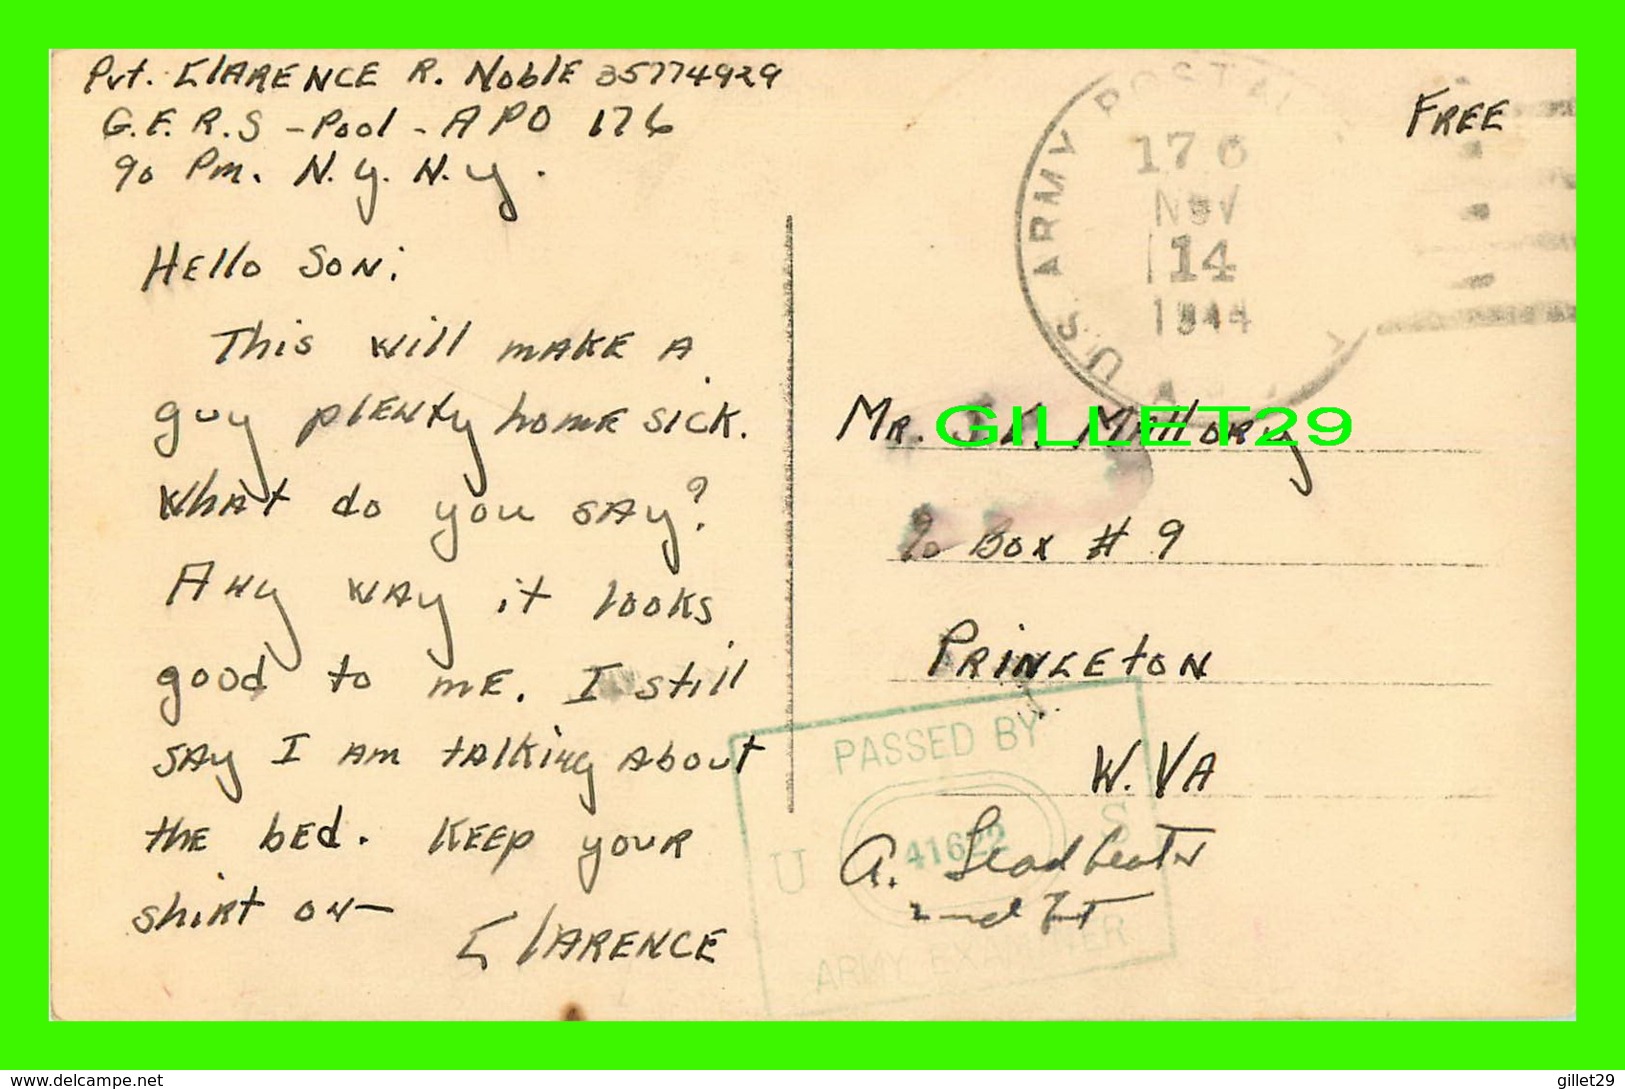 Pvt. CLARENCE R. NoblE 35774929
G.F.R.S - Pool - APO 176
c/o Pm. N.Y. N.Y.
HEllo SON:
This will MAKE A
guy PLENty homE SICK.
What do you SAY?
ANy WAY it looks
good to ME. I still
SAY I AM tALKiNg About
thE bEd. KEEP youR
shiRt ON—
CLARENCE
FREE
U.S. ARMY POSTAL
176
NOV
14
1944
MR. MAlloRy
c/o Box # 9
PRINCEtON
W. VA
PASSED BY
U 41622 S
ARMY EXAMINER
A. Leadbeater
2nd Lt
GILLET29
www.delcampe.net
gillet29